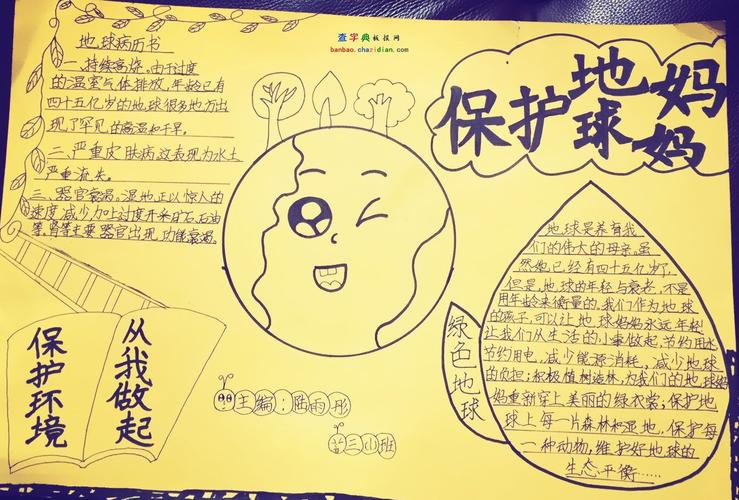 查字典板报网
banbao.chazidian.com
保护地球妈妈
地球病历书
一、持续高烧。由于过度
的温室气体排放,年龄已有
四十五亿岁的地球很多地方出
现了罕见的高温和干旱。
二、严重皮肤病,这表现为水土
严重流失。
三、器官衰竭。湿地正以惊人的
速度减少,加上过度开采矿石,石油
等,肾等主要器官出现功能衰竭。
保护环境
从我做起
主编:陆雨彤
三(1)班
绿色地球
地球是养育我
们的伟大的母亲。虽
然她已经有四十五亿岁了,
但是,地球的年轻与衰老,不是
用年龄来衡量的,我们作为地球
的孩子,可以让地球妈妈永远年轻!
让我们从生活的小事做起,节约用水
节约用电,减少能源消耗,减少地球
的负担;积极植树造林,为我们的地球妈
妈重新穿上美丽的绿衣裳;保护地
球上每一片森林和湿地,保护每
一种动物,维护好地球的
生态平衡……